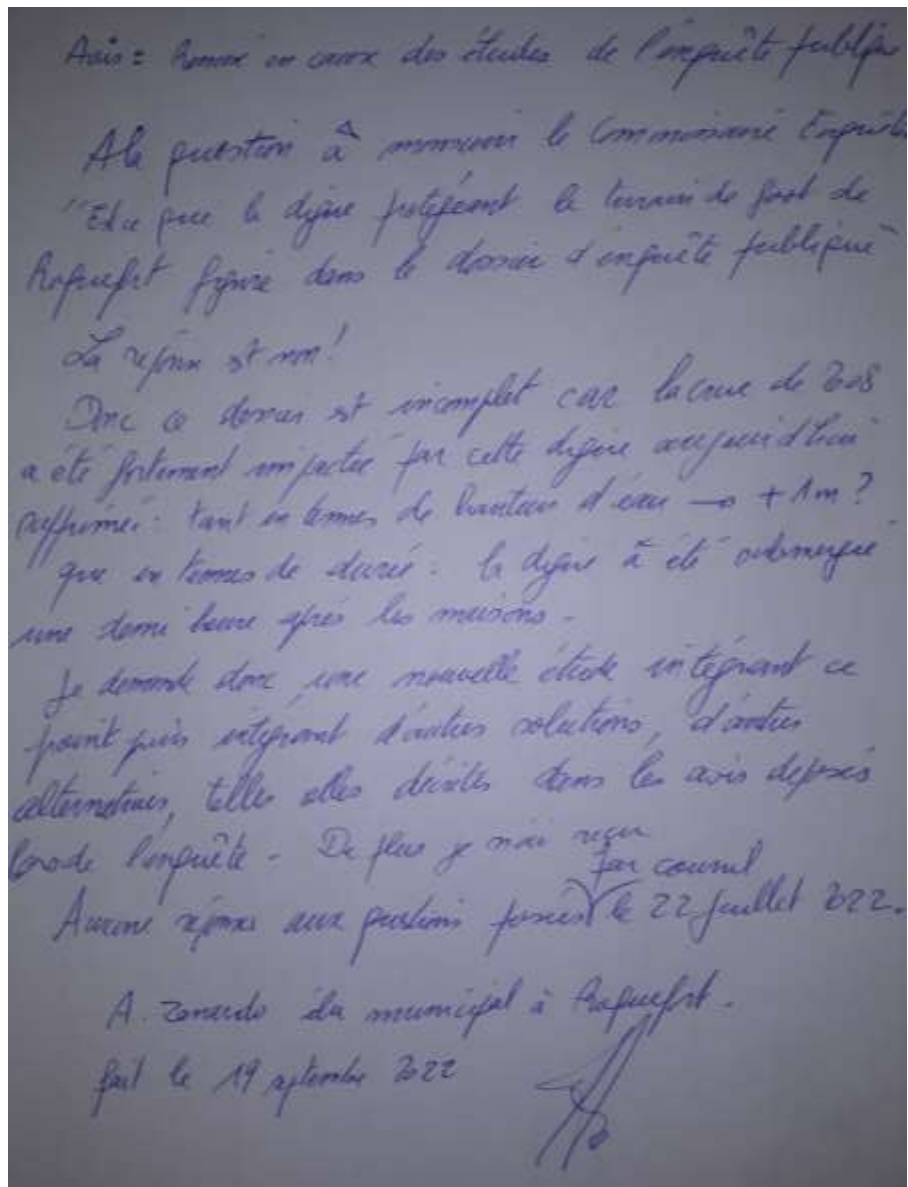 Avis : Remise en cause des études de l'enquête publique
A la question à monsieur le Commissaire Enquête
"Est ce que la digue protégeant le terrain de foot de
Roquefort figure dans le dossier d'enquête publique"
La réponse est non!
Donc ce dossier est incomplet car la crue de 2008
a été fortement impactée par cette digue aujourd'hui
supprimée: tant en termes de hauteur d'eau → + 1m ?
que en termes de durée : la digue à été submergée
une demi heure après les maisons.
Je demande donc une nouvelle étude intégrant ce
point puis intégrant d'autres solutions, d'autres
alternatives, telles décrites dans les avis déposés
lors de l'enquête - De plus je n'ai reçu
par courriel
Aucune réponse aux questions posées le 22 juillet 2022.
A. Zanardo élu municipal à Roquefort.
fait le 19 septembre 2022